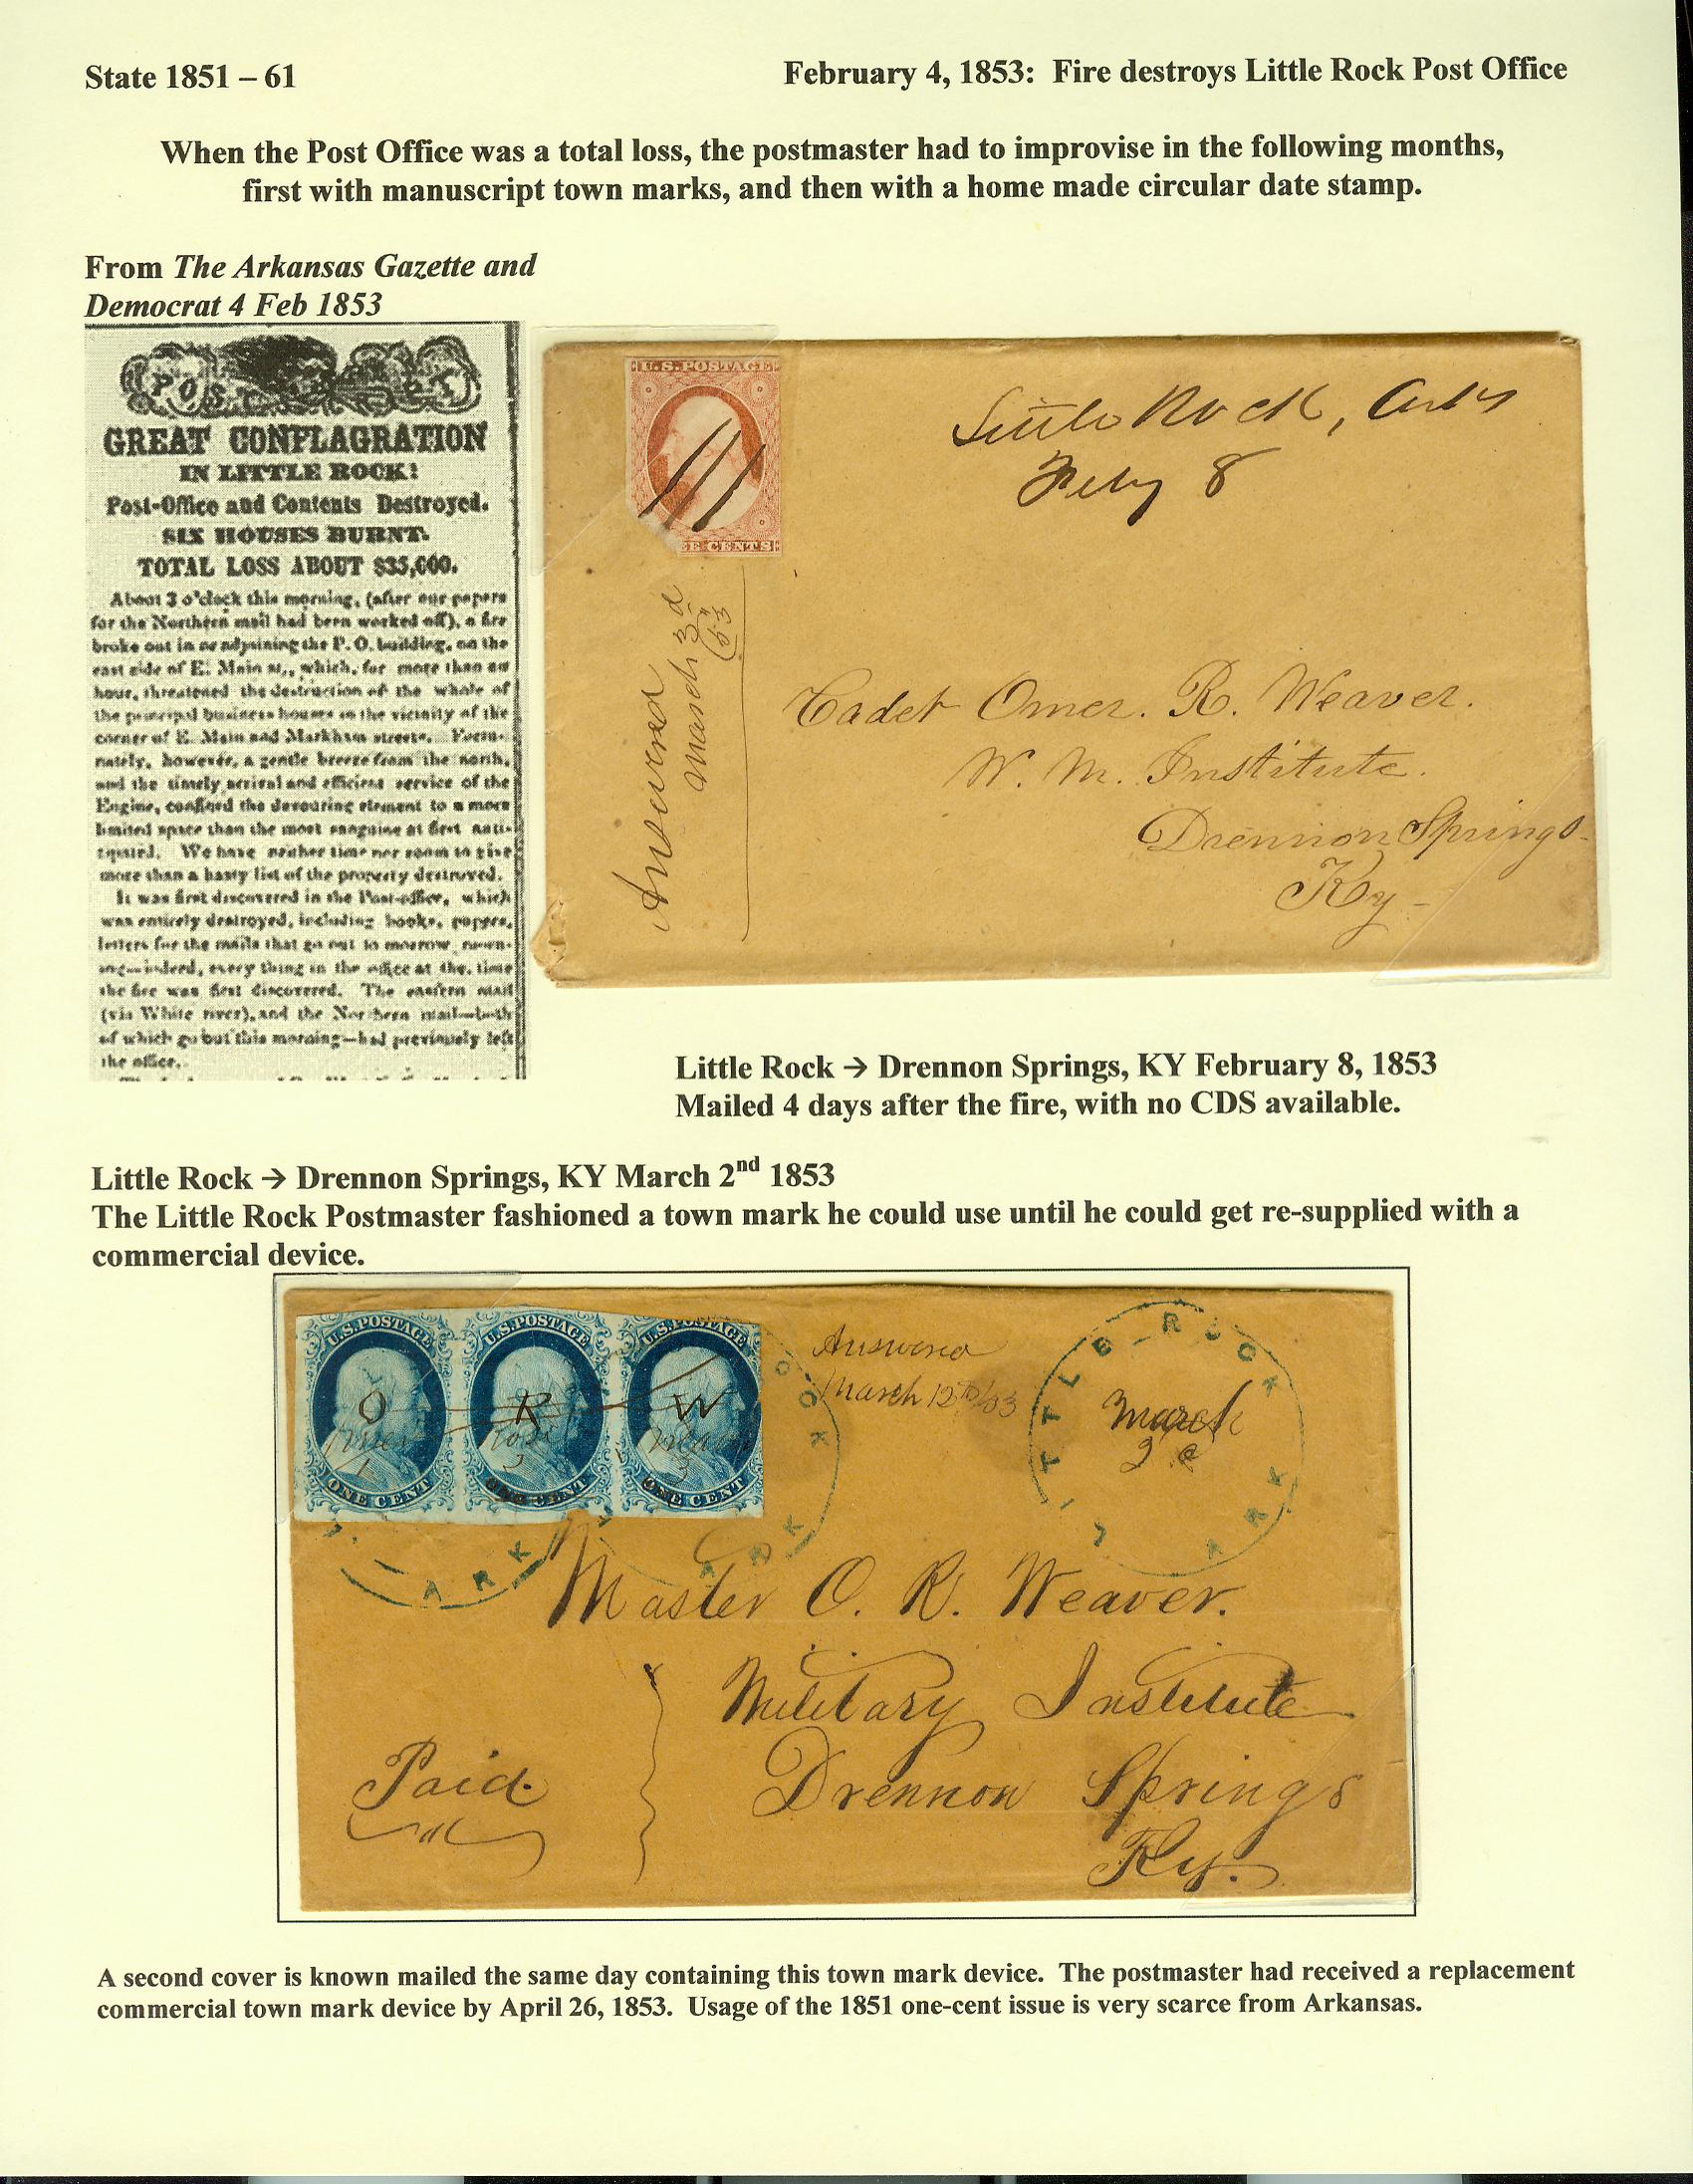 State 1851 – 61
February 4, 1853: Fire destroys Little Rock Post Office
When the Post Office was a total loss, the postmaster had to improvise in the following months,
first with manuscript town marks, and then with a home made circular date stamp.
From The Arkansas Gazette and
Democrat 4 Feb 1853
POST
GREAT CONFLAGRATION
IN LITTLE ROCK!
Post-Office and Contents Destroyed.
SIX HOUSES BURNT.
TOTAL LOSS ABOUT $35,000.
About 3 o'clock this morning, (after our papers
for the Northern mail had been worked off), a fire
broke out in or adjoining the P. O. building, on the
east side of E. Main st., which, for more than an
hour, threatened the destruction of the whole of
the principal business houses in the vicinity of the
corner of E. Main and Markham streets. Fortu-
nately, however, a gentle breeze from the north,
and the timely arrival and efficient service of the
Engine, confined the devouring element to a more
limited space than the most sanguine at first anti-
cipated. We have neither time nor room to give
more than a hasty list of the property destroyed.
It was first discovered in the Post-office, which
was entirely destroyed, including books, papers,
letters for the mails that go out to morrow morn-
ing—indeed, every thing in the office at the time
the fire was first discovered. The eastern mail
(via White river), and the Northern mail—both
of which go out this morning—had previously left
the office.
U.S. POSTAGE
EE CENTS
Little Rock, Arks
Feby 8
Answered
March 3d
53
Cadet Omer. R. Weaver.
W. M. Institute.
Drennon Springs
Ky
Little Rock → Drennon Springs, KY February 8, 1853
Mailed 4 days after the fire, with no CDS available.
Little Rock → Drennon Springs, KY March 2nd 1853
The Little Rock Postmaster fashioned a town mark he could use until he could get re-supplied with a
commercial device.
U.S. POSTAGE U.S. POSTAGE U.S. POSTAGE
O R W
ONE CENT ONE CENT ONE CENT
Answered
March 12th/53
LITTLE ROCK
March
2
ARK
ARK
ARK
Master O. R. Weaver.
Military Institute
Drennon Springs
Ky.
Paid.
A second cover is known mailed the same day containing this town mark device. The postmaster had received a replacement
commercial town mark device by April 26, 1853. Usage of the 1851 one-cent issue is very scarce from Arkansas.